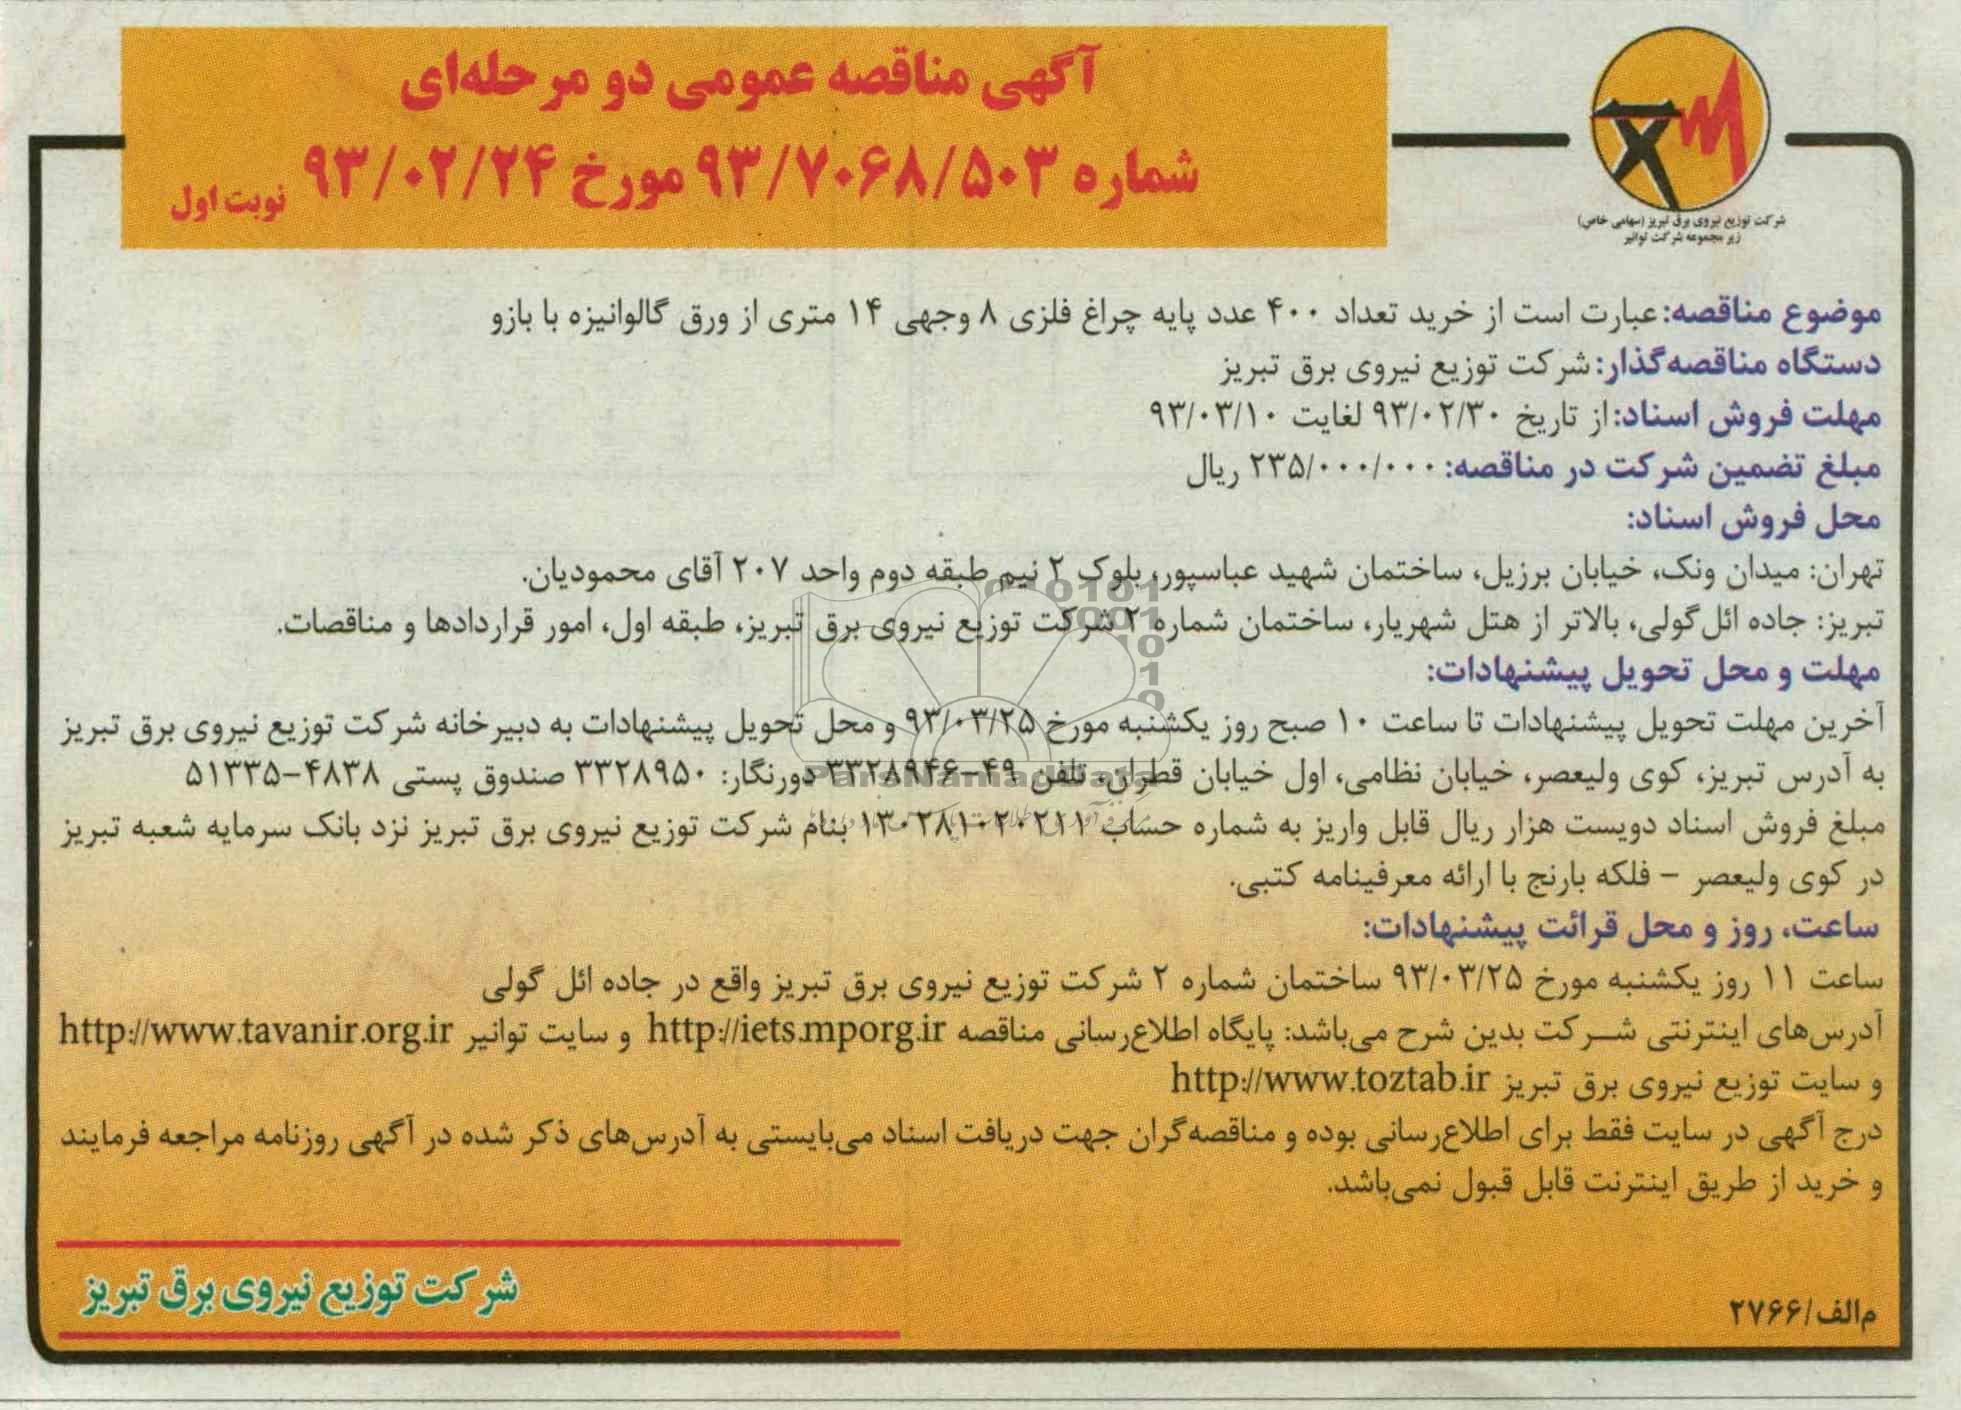 آگهی مناقصه عمومی دو مرحله‌ای
شماره ۹۳/۷۰۶۸/۵۰۳ مورخ ۹۳/۰۲/۲۴ نوبت اول
شرکت توزیع نیروی برق تبریز (سهامی خاص)
زیر مجموعه شرکت توانیر
موضوع مناقصه: عبارت است از خرید تعداد ۴۰۰ عدد پایه چراغ فلزی ۸ وجهی ۱۴ متری از ورق گالوانیزه با بازو
دستگاه مناقصه‌گذار: شرکت توزیع نیروی برق تبریز
مهلت فروش اسناد: از تاریخ ۹۳/۰۲/۳۰ لغایت ۹۳/۰۳/۱۰
مبلغ تضمین شرکت در مناقصه: ۲۳۵/۰۰۰/۰۰۰ ریال
محل فروش اسناد:
تهران: میدان ونک، خیابان برزیل، ساختمان شهید عباسپور، بلوک ۲ نیم طبقه دوم واحد ۲۰۷ آقای محمودیان.
تبریز: جاده ائل گولی، بالاتر از هتل شهریار، ساختمان شماره ۲ شرکت توزیع نیروی برق تبریز، طبقه اول، امور قراردادها و مناقصات.
مهلت و محل تحویل پیشنهادات:
آخرین مهلت تحویل پیشنهادات تا ساعت ۱۰ صبح روز یکشنبه مورخ ۹۳/۰۳/۲۵ و محل تحویل پیشنهادات به دبیرخانه شرکت توزیع نیروی برق تبریز
به آدرس تبریز، کوی ولیعصر، خیابان نظامی، اول خیابان قطران، تلفن ۴۹-۳۳۲۸۹۴۶ دورنگار: ۳۳۲۸۹۵۰ صندوق پستی ۴۸۳۸-۵۱۳۳۵
مبلغ فروش اسناد دویست هزار ریال قابل واریز به شماره حساب ۱۳۰۲۸۱۰۲۰۲۱۱ بنام شرکت توزیع نیروی برق تبریز نزد بانک سرمایه شعبه تبریز
در کوی ولیعصر - فلکه بارنج با ارائه معرفینامه کتبی.
ساعت، روز و محل قرائت پیشنهادات:
ساعت ۱۱ روز یکشنبه مورخ ۹۳/۰۳/۲۵ ساختمان شماره ۲ شرکت توزیع نیروی برق تبریز واقع در جاده ائل گولی
آدرس‌های اینترنتی شرکت بدین شرح می‌باشد: پایگاه اطلاع‌رسانی مناقصه http://iets.mporg.ir و سایت توانیر http://www.tavanir.org.ir
و سایت توزیع نیروی برق تبریز http://www.toztab.ir
درج آگهی در سایت فقط برای اطلاع‌رسانی بوده و مناقصه‌گران جهت دریافت اسناد می‌بایستی به آدرس‌های ذکر شده در آگهی روزنامه مراجعه فرمایند
و خرید از طریق اینترنت قابل قبول نمی‌باشد.
م‌الف/۲۷۶۶
شرکت توزیع نیروی برق تبریز
ParsNamadData